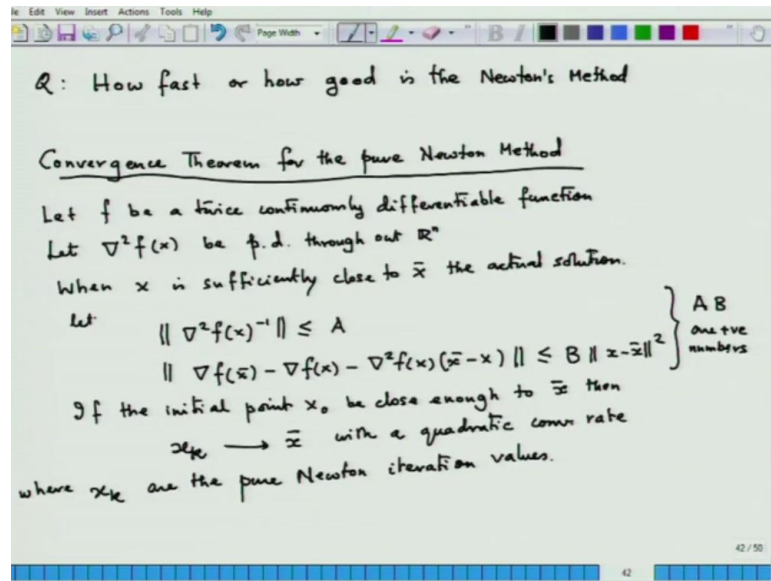 le Edit View Insert Actions Tools Help
Page Width
B I
Q: How fast or how good is the Newton's Method
Convergence Theorem for the pure Newton Method
Let f be a twice continuously differentiable function
Let ∇²f(x) be p.d. through out ℝⁿ
When x is sufficiently close to x̄ the actual solution.
let
‖ ∇²f(x)⁻¹ ‖ ≤ A
‖ ∇f(x̄) − ∇f(x) − ∇²f(x)(x̄−x) ‖ ≤ B ‖ x−x̄ ‖²
} A B
are +ve
numbers
If the initial point x₀ be close enough to x̄ then
xₖ ⟶ x̄ with a quadratic conv rate
where xₖ are the pure Newton iteration values.
42 / 50
42